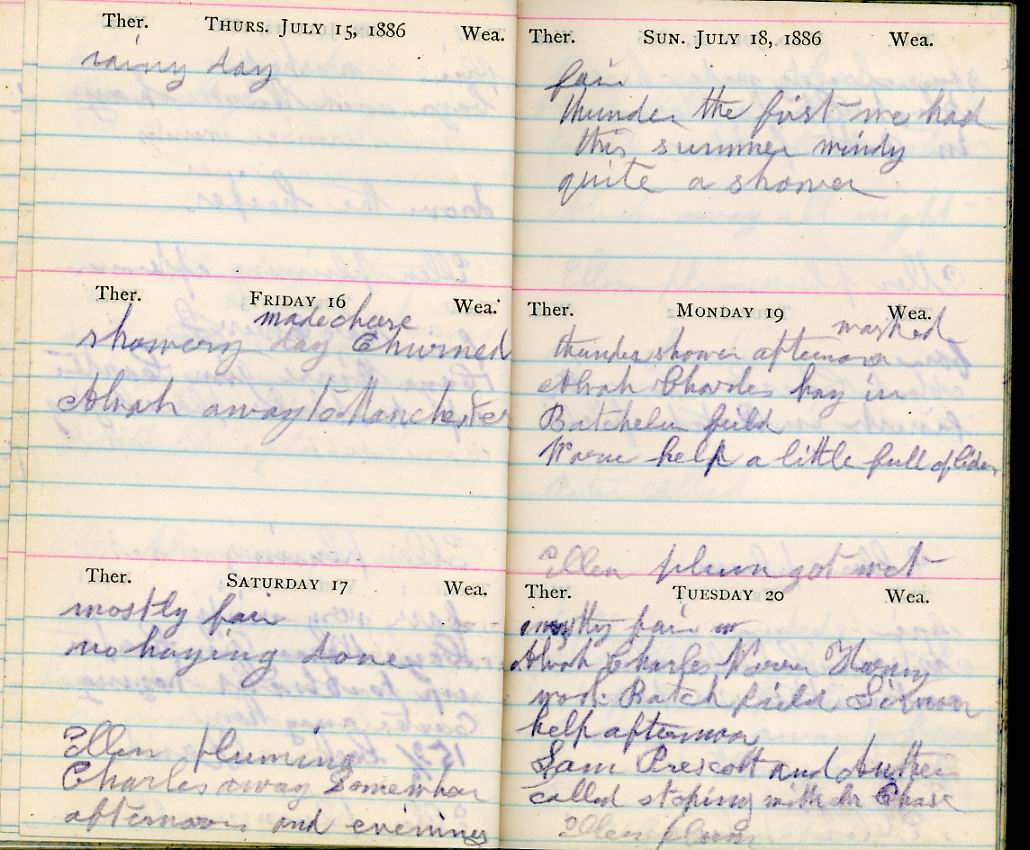 Ther. THURS. JULY 15, 1886 Wea.
rainy day
Ther. FRIDAY 16 Wea.
made cheese
showery day Churned
Alvah away to Manchester
Ther. SATURDAY 17 Wea.
mostly fair
no haying done
Ellen pluming
Charles away Somewhar
afternoon and evening
Ther. SUN. JULY 18, 1886 Wea.
fair
thunder the first we had
this summer windy
quite a shower
Ther. MONDAY 19 Wea.
washed
thunder shower afternoon
Alvah Charles hay in
Batchelor field
help a little full of cider
Ellen plum got wet
Ther. TUESDAY 20 Wea.
mostly fair
Alvah Charles
work Batch field
help afternoon
Sam Prescott and
called stoping with Dr Chase
Ellen plum